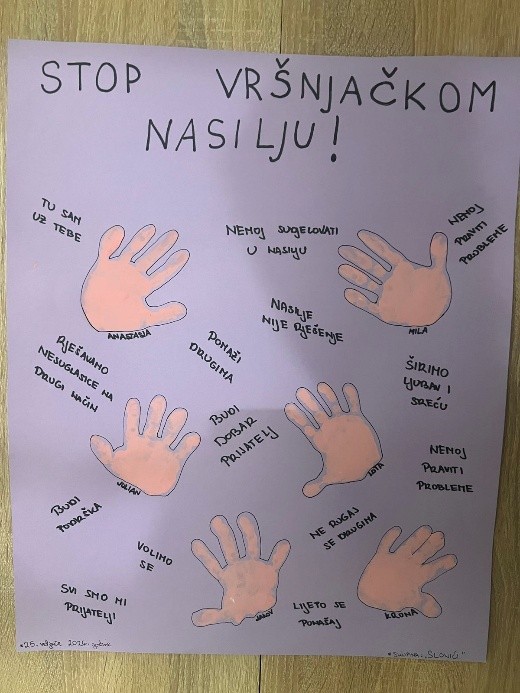 STOP VRŠNJAČKOM
NASILJU!
TU SAM
UZ TEBE
NEMOJ SUDJELOVATI
U NASILJU
NEMOJ
PRAVITI
PROBLEME
ANASTASIJA
MILA
NASILJE
NIJE RJEŠENJE
RJEŠAVAMO
NESUGLASICE NA
DRUGI NAČIN
POMAŽI
DRUGIMA
ŠIRIMO
LJUBAV I
SREĆU
BUDI
DOBAR
PRIJATELJ
JULIAN
LOTA
NEMOJ
PRAVITI
PROBLEME
BUDI
PODRŠKA
NE RUGAJ
SE DRUGIMA
VOLIMO
SE
SVI SMO MI
PRIJATELJI
JAKOV
LIJEPO SE
PONAŠAJ
KRUNA
•25. veljače 2026. godine
"SLONIĆI"